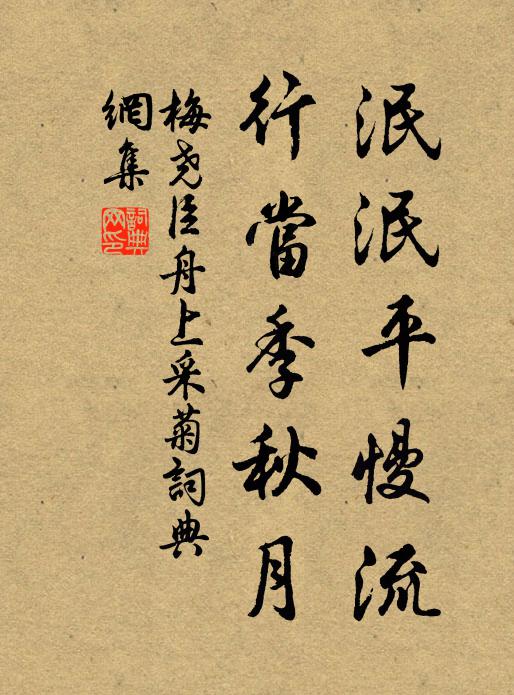 泯泯平慢流
行當季秋月
梅堯臣舟上采菊詞典
網集
詞典
网印